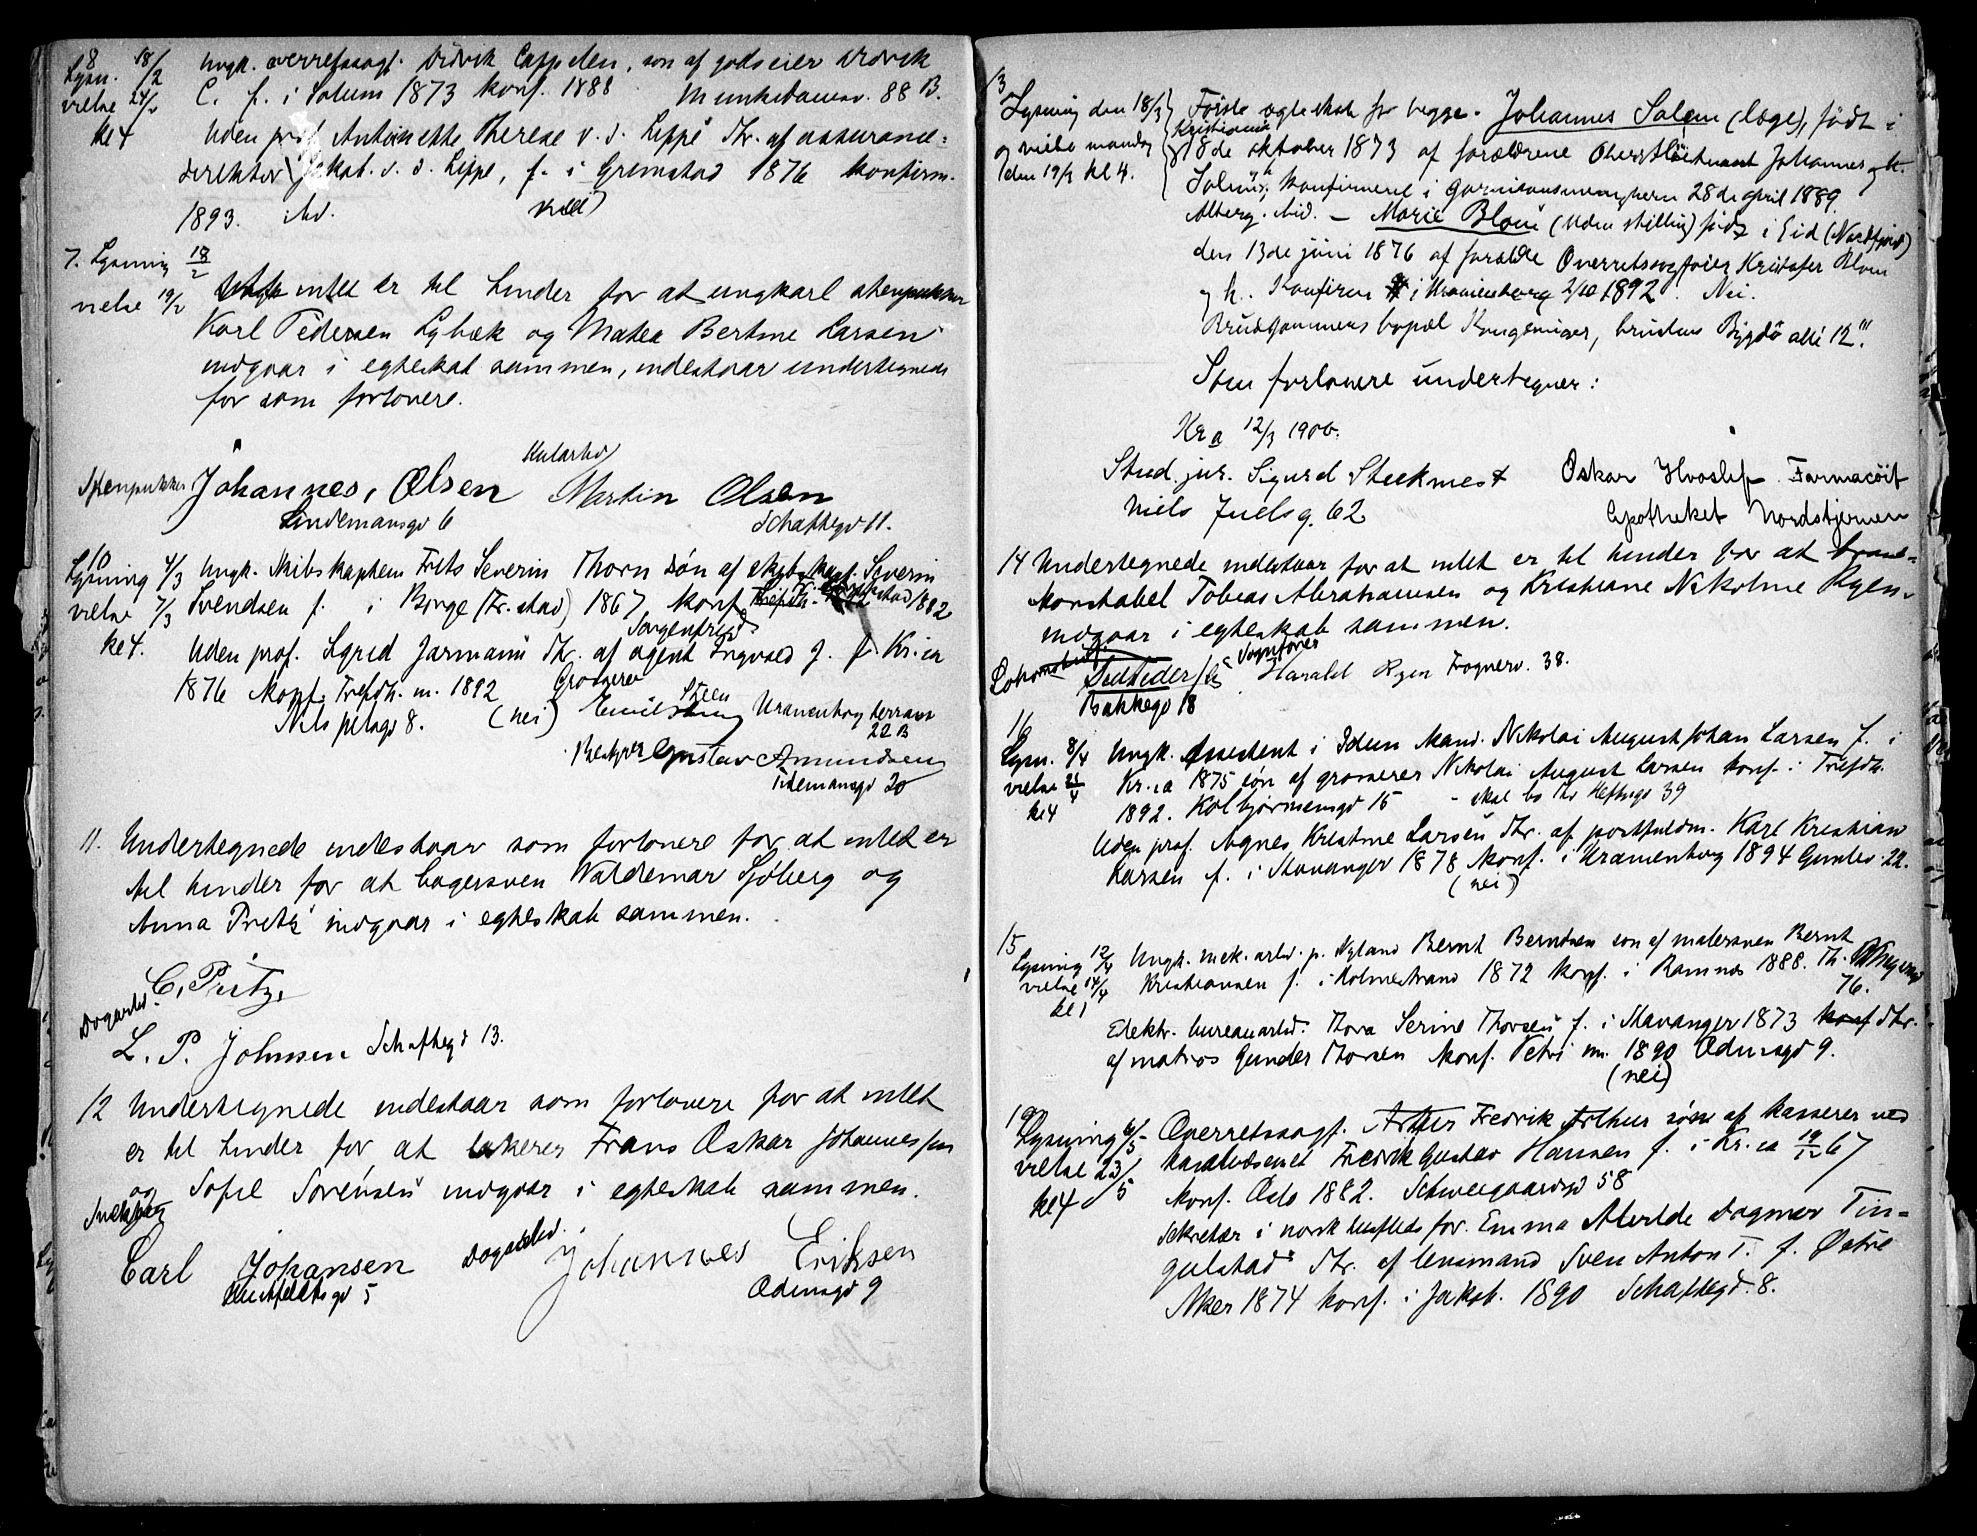 8
Lysn. 18/2 Ungk. overretssagf. Didrik Cappelen, søn af godseier Didrik
vielse 24/2 C. f. i Solum 1873 konf. 1888 Munkedamsv. 88 B.
kl 4 Uden prof Antoinette Therese v. d. Lippe Dtr. af assurance-
direktør Jakob v. d. Lippe, f. i Grimstad 1876 konfirm.
1893. ibd. (nei)
7. Lysning 18/2
vielse 19/2 intet er til hinder for at ungkarl stenpukker
Karl Pedersen Lybæk og Matea Bertine Larsen
indgaar i egteskab sammen, indestaar undertegnede
for som forlovere.
Stenpukker Johannes, Olsen Martin Olsen
Lindemansgd 6 Schaftegd 11.
10
Lysning 4/3 Ungk. Skibskaptein Frits Severin Thorn søn af skibskapt. Severin
vielse 7/3 Svendsen f. i Borge (Fr.stad) 1867 konf. 1882
kl 4. Uden prof. Sigrid Jarmann Dtr. af agent Ingvald J. f. Kr.ia
1876 konf. Trefdh. m. 1892
Nils Juelsgd 8. (nei) Grosserer Emil Steen Uranienborg terrasse
22 B
Bestyrer Gustav Amundsen
Tidemansgd 20
11. Undertegnede indestaar som forlovere for at intet er
til hinder for at bagersven Valdemar Sjöberg og
Anna Pritz indgaar i egteskab sammen.
C. Pritz,
Dagarbd.
L. P. Johnsen Schaftegd 13.
12 Undertegnede indestaar som forlovere for at intet
er til hinder for at lakerer Frans Oskar Johannessen
og Sofie Sørensen indgaar i egteskab sammen.
Snekker
Carl Johansen Dagarbd. Johannes Eriksen
Huitfeldtsgd 5 Odinsgd 9
13
Lysning den 18/3 Første ægteskab for begge. Johannes Salem (læge), født i
og vielse mandag Kristiania 18de oktober 1873 af forældrene Oberstløitnant Johannes og h.
den 19/3 kl 4. Konfirmeret i Garnisonsmenigheden 28de april 1889
Alberg. Nid. — Marie Blom (Uden stilling) født i Eid (Nordfjord)
den 13de juni 1876 af forældre Overretssagfører Kristofer Blom
og h. Konfirm i Uranienborg 2/10 1892. Nei.
Brudgommens bopæl Kongsvinger, brudens Bygdø allé 12III.
Som forlovere undertegner:
Kra 12/3 1900.
Stud. jur. Sigurd Steckmest Oskar Hvoslef Farmacöit
Niels Juels g. 62 Apotheket Nordstjernen
14 Undertegnede indestaar for at intet er til hinder for at brand-
konstabel Tobias Abrahamsen og Kristiane Nikoline Ryen
indgaar i egteskab sammen.
Vognfører Harald Ryen Frognerv. 38.
Bakkegd 18
16
Lysn. 8/4 Ungk. Assistent i Idun Mand. Nikolai August Johan Larsen f. i
vielse 21/4 Kr.ia 1875 søn af grosserer Nikolai August Larsen konf. i Trefdh.
kl 4 1892. Kolbjørnsensgd 15 - skal bo Th Heftysgd 39
Uden prof. Agnes Kristine Larsen Dtr. af portfuldm. Karl Kristian
Larsen f. i Stavanger 1878 konf. i Uranienborg 1894 Gimlev 22.
(nei)
15
Lysning 12/4 Ungk. mek. arbd. p. Nyland Bernt Berntsen søn af malersven Bernt
vielse 14/4 Kristiansen f. i Holmestrand 1872 konf. i Ramnes 1888.
kl 1 76.
Elektr. bureauarbd. Thora Serine Thorsen f. i Stavanger 1873 Dtr.
af matros Gunder Thorsen konf. Petri m. 1890 Odinsgd 9.
(nei)
19
Lysning 6/5 Overretssagf. Fredrik Arthur søn af kasserer ved
vielse 23/5 kanalvæsenet Fredrik Gustav Hansen f. i Kr.ia 19/12 67
kl 4 konf. Oslo 1882. Schweigaardsgd 58
Sekretær i norsk husflids for. Emma Alvilde Dagmar Tin-
gulstad Dtr. af lensmand Sven Anton T. f. Østre
Aker 1874 konf. i Jakob. 1890 Schaftegd. 8.